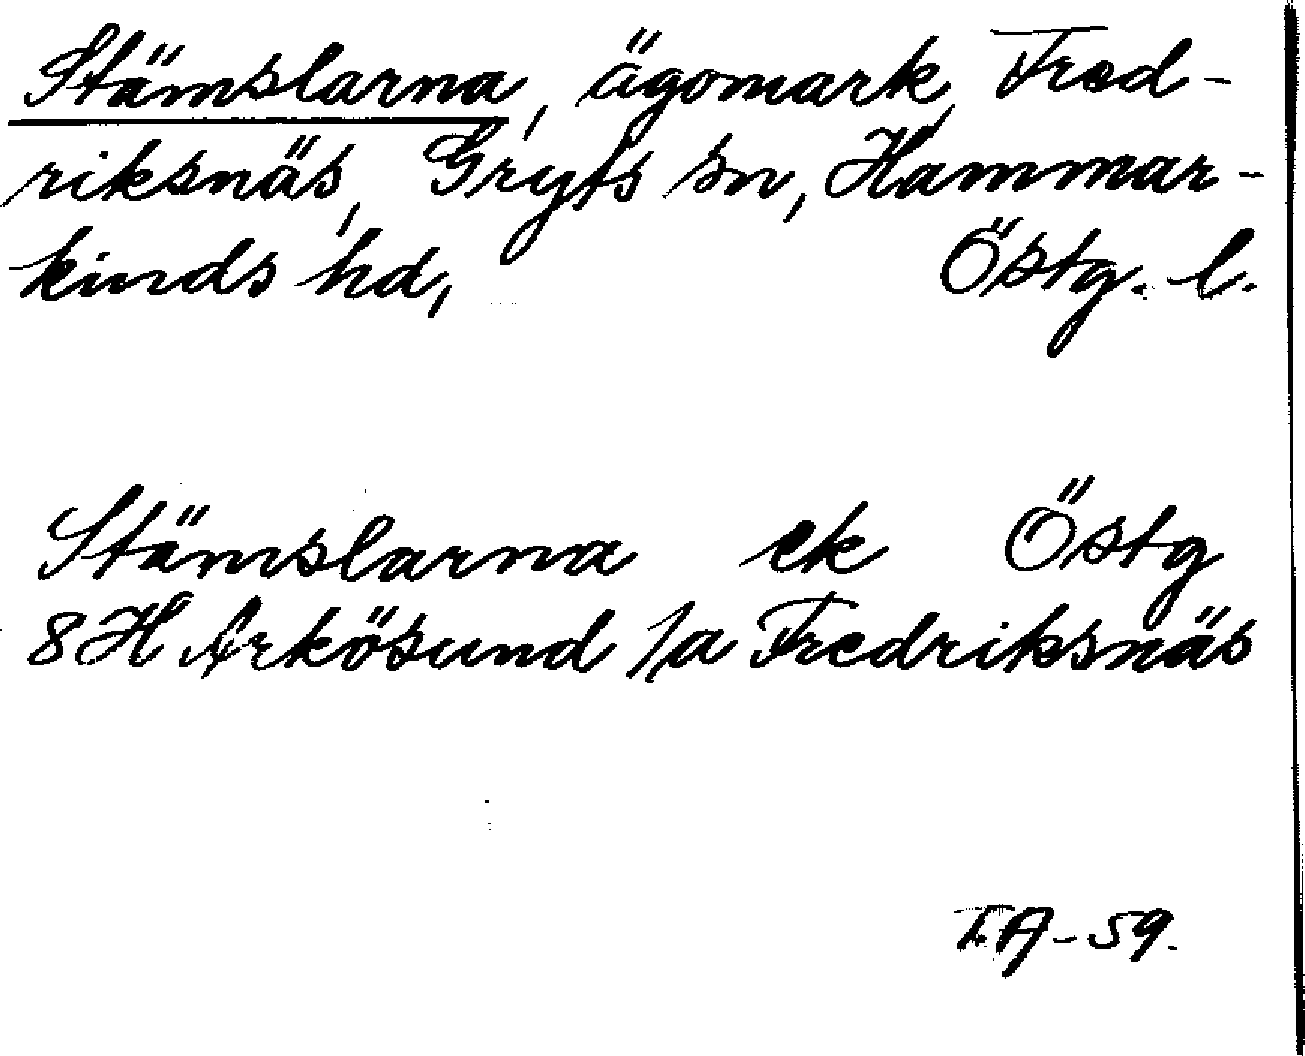 Stämslarna, ägomark, Fred-
riksnäs, Gryts sn, Hammar-
kinds hd, Östg. l.
Stämslarna ek Östg
8H Arkösund 1a Fredriksnäs
T.A-59.